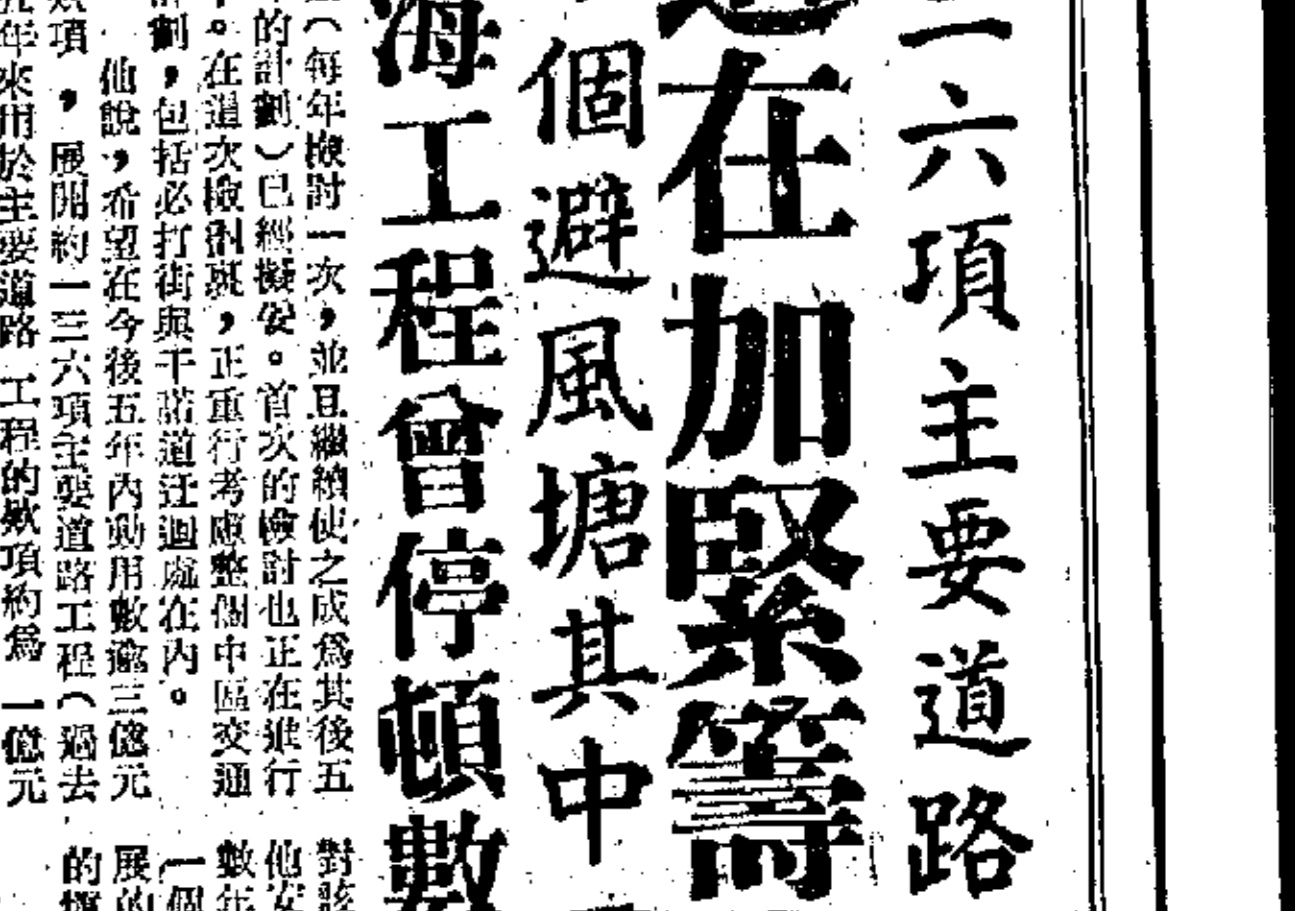 六項主要道路
在加緊籌
個避風塘其中
海工程曾停頓數
(每年檢討一次,並且繼續使之成爲其後五
的計劃)已經擬妥。首次的檢討也正在進行
。在這次檢討裏,正重行考慮整個中區交通
劃,包括必打街與干諾道迂迴處在內。
他說,希望在今後五年內動用數逾三億元
項,展開約一三六項主要道路工程(過去
年來用於主要道路工程的欵項約爲一億元
對
他
數年
一個
展的
的